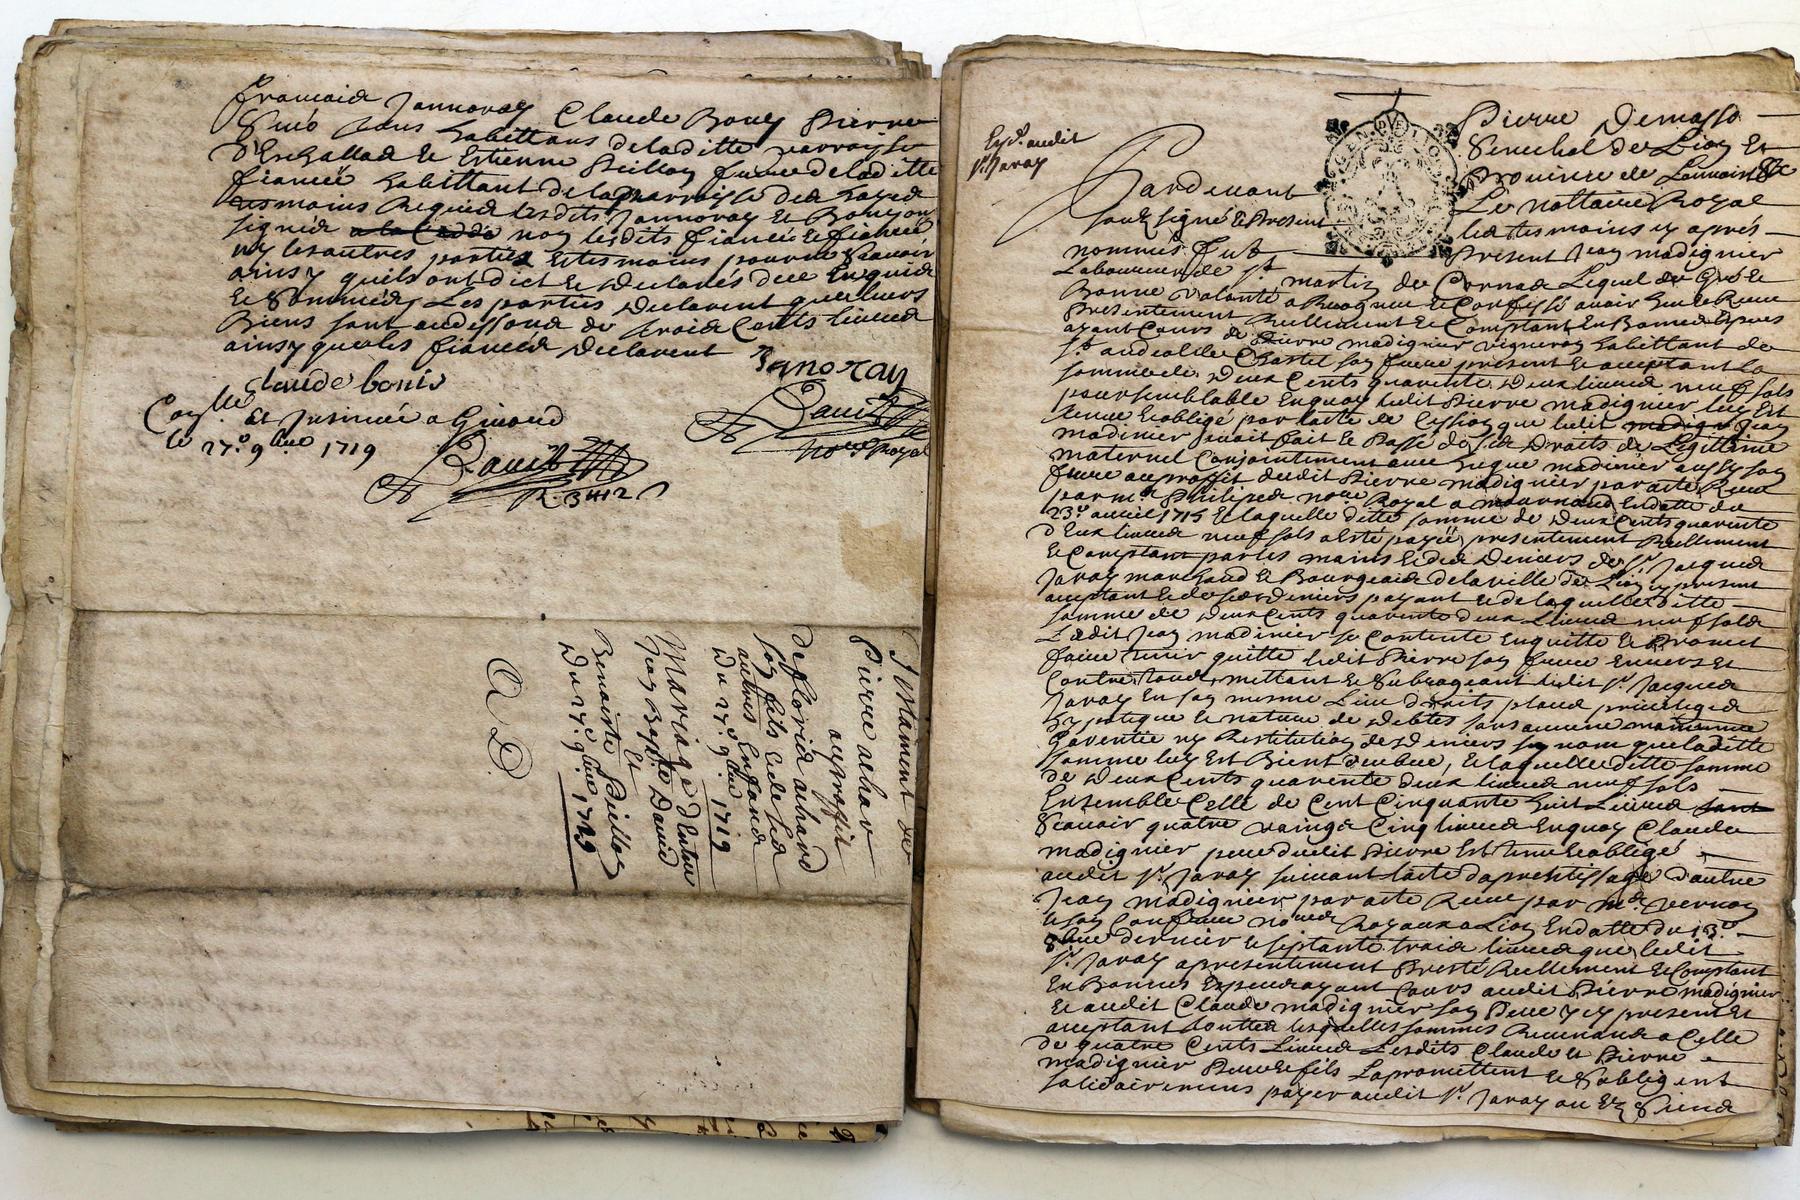 francois Jannoray Claude Bouy Pierre
tous habittans deladitte parroisse
et Estienne Peillon frere deladitte
fiancée habittant dela parroisse des hayes
tesmoins Requis lesdits Jannoray et Bouy on
signés non lesdits fiancés
ny les autres parties et tesmoins pour ne scavoir
ainsy quils ont dict et declarés de ce Enquis
et Sommés, Les parties declarent que leurs
Biens sont audessous de trois Cents livres
ainsy que les fiancés declarent
Janoray
claude bouis
Conlle et Insinué a Givord
le 27.e 9bre 1719
David
nore Royal
David
R. 3tt 12 s
Testament de
Pierre achar
auproffit
de floris achard
son fils et de ses
autres Enfans
Du 27e 9bre 1719
Mariage d'Entre
Jean Bapte David
Et
Benoiste Peillon
Du 27e 9bre 1719
A D
Expd. audit
Sr. Jaray
GEN. DE LION
Pardevant
Pierre Demasso
Senechal de Lion Et
Province de Lionnois
Le nottaire Royal
soubsigné et Present les tesmoins cy aprés
nommés fut Present Jean madignier
Laboureur de St. martin de Cornas Lequel de Gré et
Bonne volonté a Recognu et Confessé avoir heu et Receu
Presentement Reellement et Comptant En Bonnes Especes
ayant Cours de Pierre madignier vigneron habittant de
St. andeol le Chastel son frere present et acceptant La
somme de deux Cents quarente deux livres neuf sols
pour semblable Enquoy ledit Pierre madignier luy Est
tenu et obligé par lacte de Cession que ledit Jean
madinier avoit fait et Passé de ses Droits de Legitime
maternel Conjointement avec hugue madinier aussy son
frere auproffit dudit Pierre madignier par acte Receu
par me. Philipes nore Royal a mournand En datte du
23.e avril 1715 et laquelle ditte somme de deux Cents quarente
deux livres neuf sols a Esté payée presentement Reellement
et Comptant par les mains et des deniers de Sr. Jacques
Jaray marchand et Bourgeois de la ville de Lion cy present
acceptant et de ses deniers payant et de laquelle ditte
somme de deux Cents quarente deux livres neuf sols
Ledit Jean madinier se Contente Enquitte et Promet
faire tenir quitte ledit Pierre son frere envers Et
Contre tous, mettant et Subrogeant ledit Sr. Jacques
Jaray En son mesme Lieu droits place privileges
hypotique et nature de debtes sans aucune
Garentie ny Restitution de deniers que laditte
somme luy Est Bient deube, et laquelle ditte somme
de deux Cents quarente deux livres neuf sols
Ensemble Celle de Cent Cinquante huit Livres
Scavoir quatre vaings Cinq livres Enquoy Claude
madignier pere dudit Pierre Est tenu et obligé
audit Sr. Jaray suivant lacte daprentissage dautre
Jean madignier par acte Receu par me. vernon
et son Confrere nores Royaux a Lion En datte du 13.e
8bre dernier et septante trois livres que ledit
Sr. Jaray a presentement Presté Reellement et Comptant
En Bonnes Especes ayant Cours audit Pierre madignier
Et audit Claude madignier son Pere icy present Et
acceptant touttes lesquelles sommes Revenans a Celle
de quatre Cents Livres Lesdits Claude et Pierre
madignier Pere et fils La promettent et S'obligent
solidairement payer audit Sr. Jaray ou Ez Siens